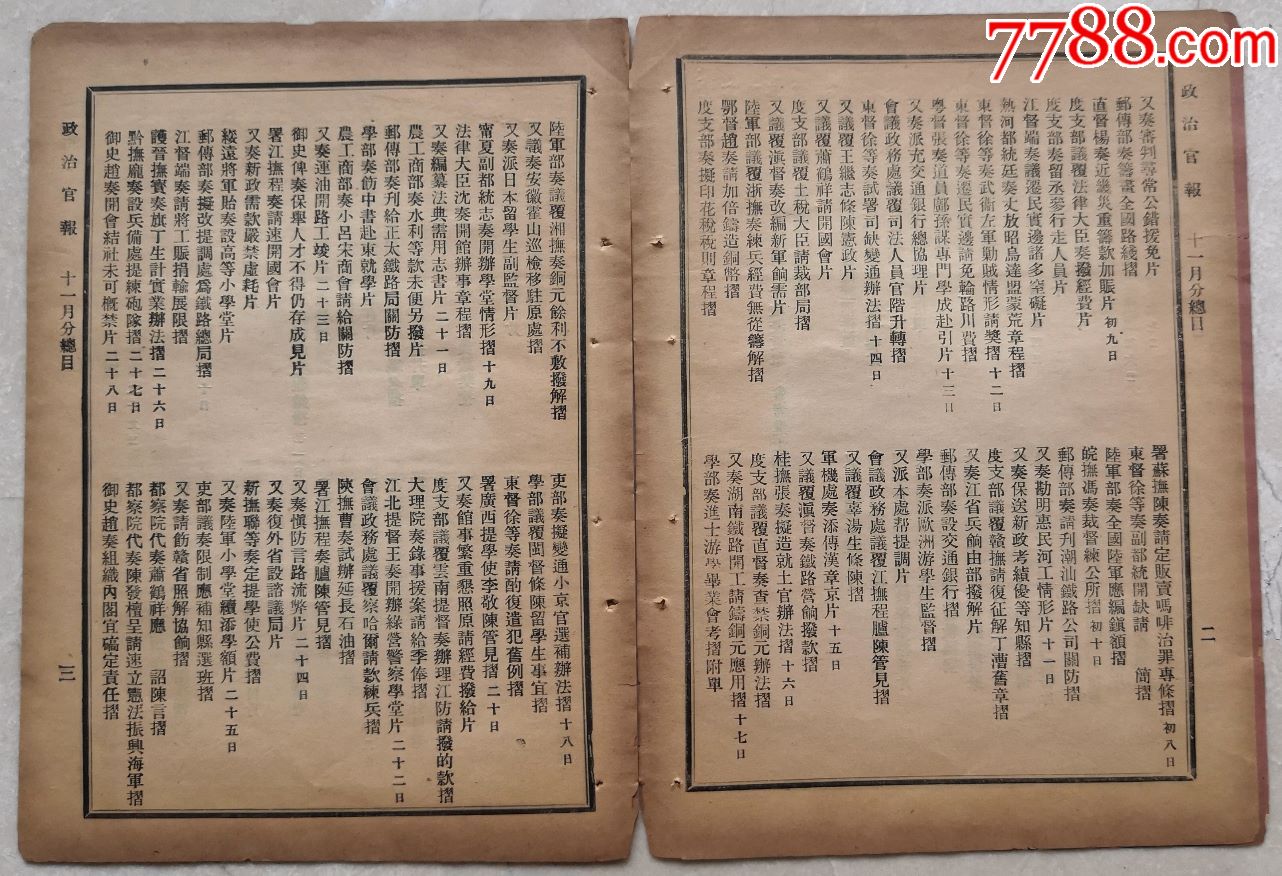 7788.com
政治官報 十一月分總目 二
又奏審判尋常公錯援免片
署蘇撫陳奏請定販賣嗎啡治罪專條摺 初八日
郵傳部奏籌畫全國路綫摺
東督徐等奏副部統開缺請 簡摺
直督楊奏近畿災重籌款加賑片 初九日
陸軍部奏全國陸軍應編鎮額摺
度支部議覆法律大臣奏撥經費片
皖撫馮奏裁督練公所摺 初十日
度支部奏留丞參行走人員片
郵傳部奏請刋潮汕鐵路公司關防摺
江督端奏議遷民實邊諸多窒礙片
又奏勘明惠民河工情形片 十一日
熱河都統廷奏丈放昭烏達盟蒙荒章程摺
又奏保送新政考績優等知縣摺
東督徐等奏武衛左軍勦賊情形請獎摺 十二日
度支部議覆贛撫請復征解丁漕舊章摺
東督徐等奏遷民實邊請免輪路川費摺
又奏江省兵餉由部撥解片
粵督張奏道員鄺孫謀專門學成赴引片 十三日
郵傳部奏設交通銀行摺
又奏派充交通銀行總協理片
學部奏派歐洲游學生監督摺
會議政務處議覆司法人員官階升轉摺
又派本處帮提調片
東督徐等奏試署司缺變通辦法摺 十四日
會議政務處議覆江撫程臚陳管見摺
又議覆王繼志條陳憲政片
又議覆辜湯生條陳摺
又議覆蕭鶴祥請開國會片
軍機處奏添傳漢章京片 十五日
度支部議覆土稅大臣請裁部局摺
又議覆滇督奏鐵路營餉撥款摺
又議覆滇督奏改編新軍餉需片
桂撫張奏擬造就土官辦法摺 十六日
陸軍部議覆浙撫奏練兵經費無從籌解摺
度支部議覆直督奏查禁銅元辦法摺
鄂督趙奏請加倍鑄造銅幣摺
又奏湖南鐵路開工請鑄銅元應用摺 十七日
度支部奏擬印花稅稅則章程摺
學部奏進士游學畢業會考摺附單
陸軍部奏議覆湘撫奏銅元餘利不敷撥解摺
吏部奏擬變通小京官選補辦法摺 十八日
又議奏安徽霍山巡檢移駐原處摺
學部議覆閩督條陳留學生事宜摺
又奏派日本留學生副監督片
東督徐等奏請酌復遣犯舊例摺
甯夏副都統志奏開辦學堂情形摺 十九日
署廣西提學使李敬陳管見摺 二十日
法律大臣沈奏開館辦事章程摺
又奏館事繁重懇照原請經費撥給片
又奏編纂法典需用志書片 二十一日
度支部議覆雲南提督奏辦理江防請撥的款摺
農工商部奏水利等款未便另撥片
大理院奏錄事援案請給季俸摺
郵傳部奏刋給正太鐵路局關防摺
江北提督王奏開辦綠營警察學堂片 二十二日
學部奏飭中書赴東就學片
會議政務處議覆察哈爾請款練兵摺
農工商部奏小呂宋商會請給關防摺
陝撫曹奏試辦延長石油摺
又奏運油開路工竣片 二十三日
署江撫程奏臚陳管見摺
御史俾奏保舉人才不得仍存成見片
又奏愼防言路流弊片 二十四日
署江撫程奏請速開國會片
又奏復外省設諮議局片
又奏新政需款嚴禁虛耗片
新撫聯等奏定提學使公費摺
綏遠將軍貽奏設高等小學堂片
又奏陸軍小學堂續添學額片 二十五日
郵傳部奏擬改提調處爲鐵路總局摺
吏部議奏限制應補知縣選班摺
江督端奏請將工賑捐輸展限摺
又奏請飭贛省照解協餉摺
護晉撫寶奏旗丁生計實業辦法摺 二十六日
都察院代奏蕭鶴祥應 詔陳言摺
黔撫龐奏設兵備處提練砲隊摺 二十七日
都察院代奏陳發檀呈請速立憲法振興海軍摺
御史趙奏開會結社未可概禁片 二十八日
御史趙奏組織內閣宜礄定責任摺
政治官報 十一月分總目 三